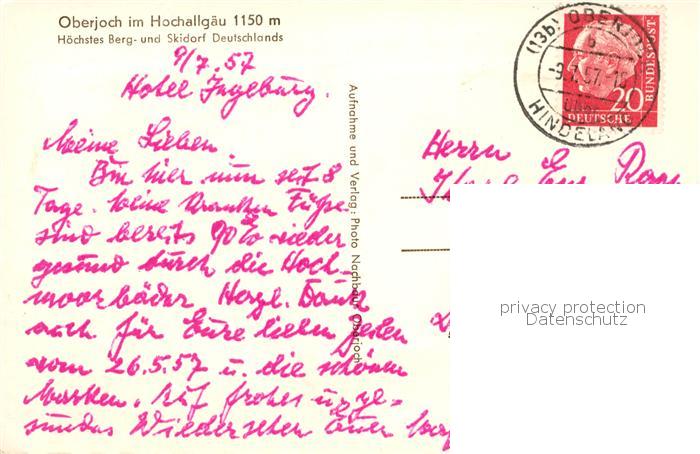 Oberjoch im Hochallgäu 1150 m
Höchstes Berg- und Skidorf Deutschlands
9/7.57
Hotel Ingeburg.
Meine Lieben
Bin hier nun seit 8
Tage. Meine kranken Füße
sind bereits 90% wieder
gesund durch die Hoch-
moorbäder Herzl. Dank
auch für Eure lieben Zeilen
vom 26.5.57 u. die schönen
Marken. Auf frohes u. ge-
sundes Wiedersehen Euer
Aufnahme und Verlag: Photo Nachbaur Oberjoch
(13b) OBERJO
b
-9.7.57.-1
ÜBER
HINDELANG
20
DEUTSCHE
BUNDESPOST
Herrn
privacy protection
Datenschutz